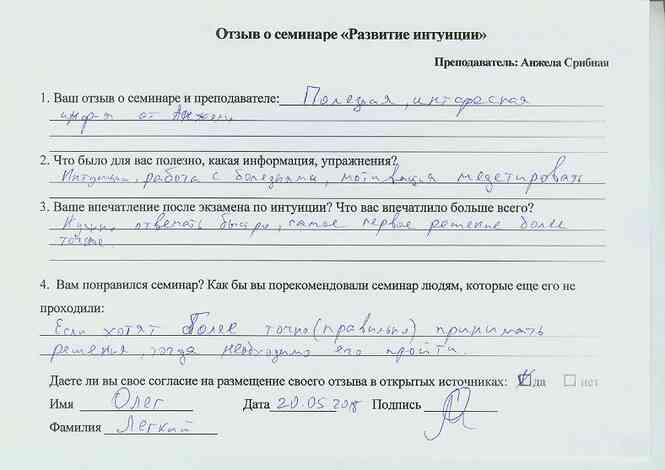 Отзыв о семинаре «Развитие интуиции»
Преподаватель: Анжела Срибная
1. Ваш отзыв о семинаре и преподавателе: Полезная, интересная
инф-я от Анжели
2. Что было для вас полезно, какая информация, упражнения?
Интуиция, работа с болезнями, мотивация медетировать
3. Ваше впечатление после экзамена по интуиции? Что вас впечатлило больше всего?
Нужно отвечать быстро, самое первое решение более
точное.
4. Вам понравился семинар? Как бы вы порекомендовали семинар людям, которые еще его не
проходили:
Если хотят более точно (правильно) принимать
решения, тогда необходимо его пройти.
Даете ли вы свое согласие на размещение своего отзыва в открытых источниках: да нет
Имя Олег Дата 20.05 2018 Подпись
Фамилия Легкий